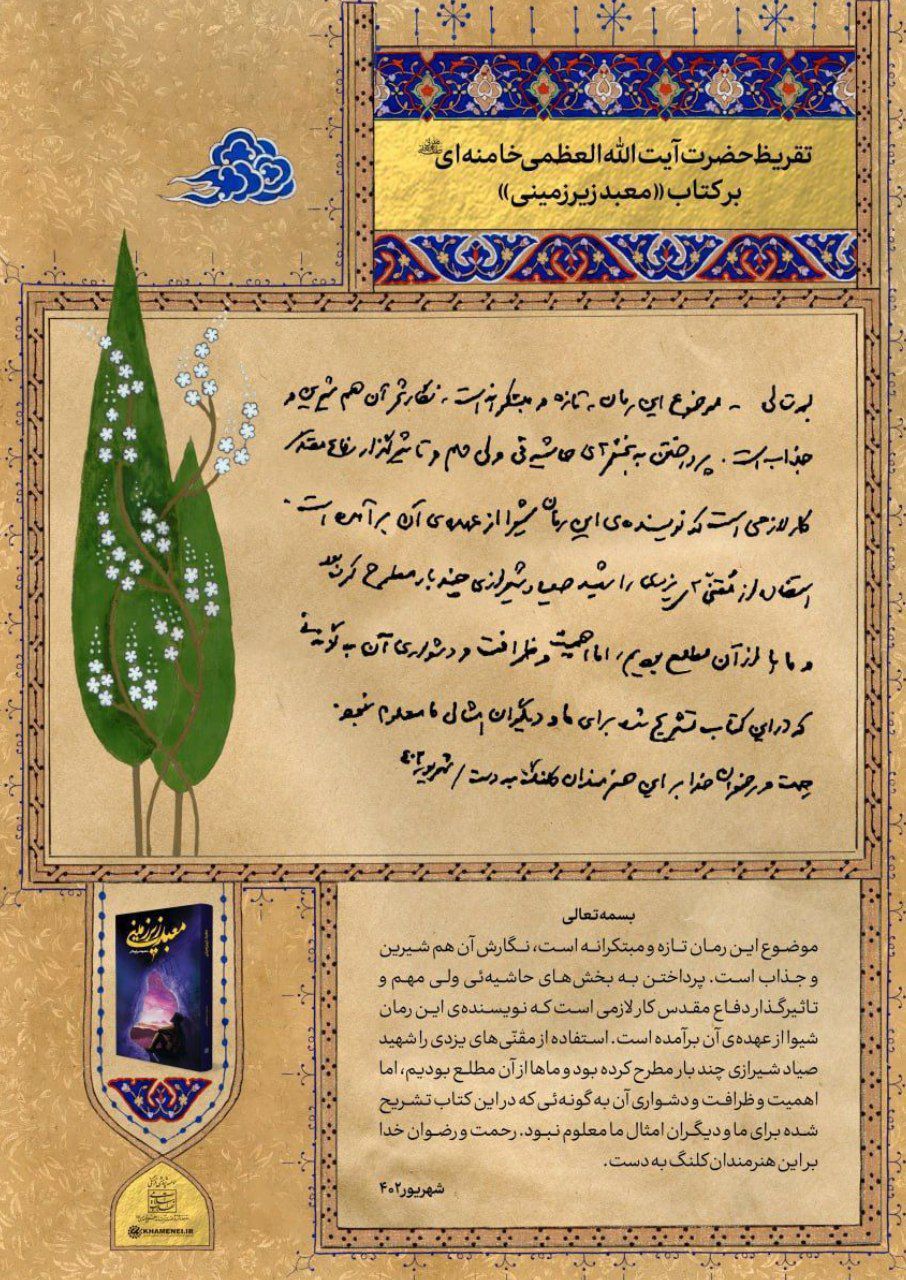 تقریظ حضرت آیت الله العظمی خامنه ای
بر کتاب «معبد زیرزمینی»
بسمه تعالی - موضوع این رمان، تازه و مبتکرانه است، نگارش آن هم شیرین و
جذاب است. پرداختن به بخش‌های حاشیه‌ئی ولی مهم و تاثیرگذار دفاع مقدس
کار لازمی است که نویسنده‌ی این رمان شیوا از عهده‌ی آن برآمده است.
استفاده از مقنّی‌های یزدی را شهید صیاد شیرازی چند بار مطرح کرده بود
و ماها از آن مطلع بودیم، اما اهمیت و ظرافت و دشواری آن به گونه‌ئی
که در این کتاب تشریح شده برای ما و دیگران امثال ما معلوم نبود.
رحمت و رضوان خدا بر این هنرمندان کلنگ به دست / شهریور ۴۰۲
بسمه تعالی
موضوع این رمان تازه و مبتکرانه است، نگارش آن هم شیرین
و جذاب است. پرداختن به بخش های حاشیه‌ئی ولی مهم و
تاثیرگذار دفاع مقدس کار لازمی است که نویسنده‌ی این رمان
شیوا از عهده‌ی آن برآمده است. استفاده از مقنّی‌های یزدی را شهید
صیاد شیرازی چند بار مطرح کرده بود و ماها از آن مطلع بودیم، اما
اهمیت و ظرافت و دشواری آن به گونه‌ئی که در این کتاب تشریح
شده برای ما و دیگران امثال ما معلوم نبود. رحمت و رضوان خدا
بر این هنرمندان کلنگ به دست.
شهریور ۴۰۲
معبد زیرزمینی
KHAMENEI.IR